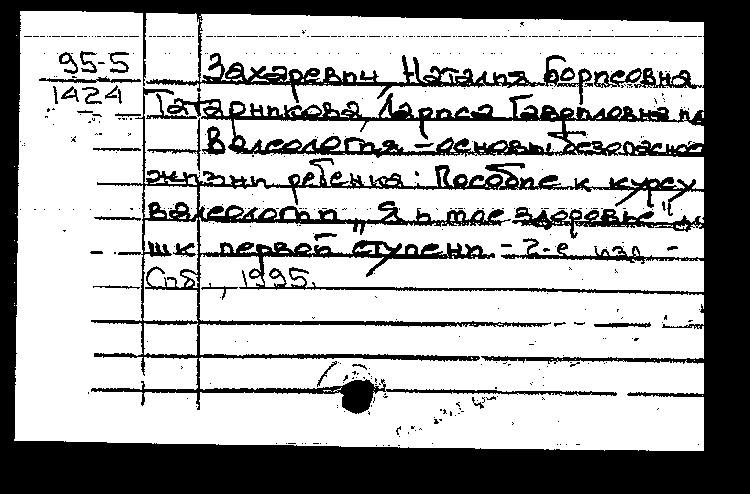 95-5
1424
Захаревич, Наталия Борисовна
Татарникова, Лариса Гавриловна
Валеология - основы безопаснос
жизни ребенка: Пособие к курсу
валеологии „Я и мое здоровье"
шк первой ступени - 2-е изд -
Спб., 1995.